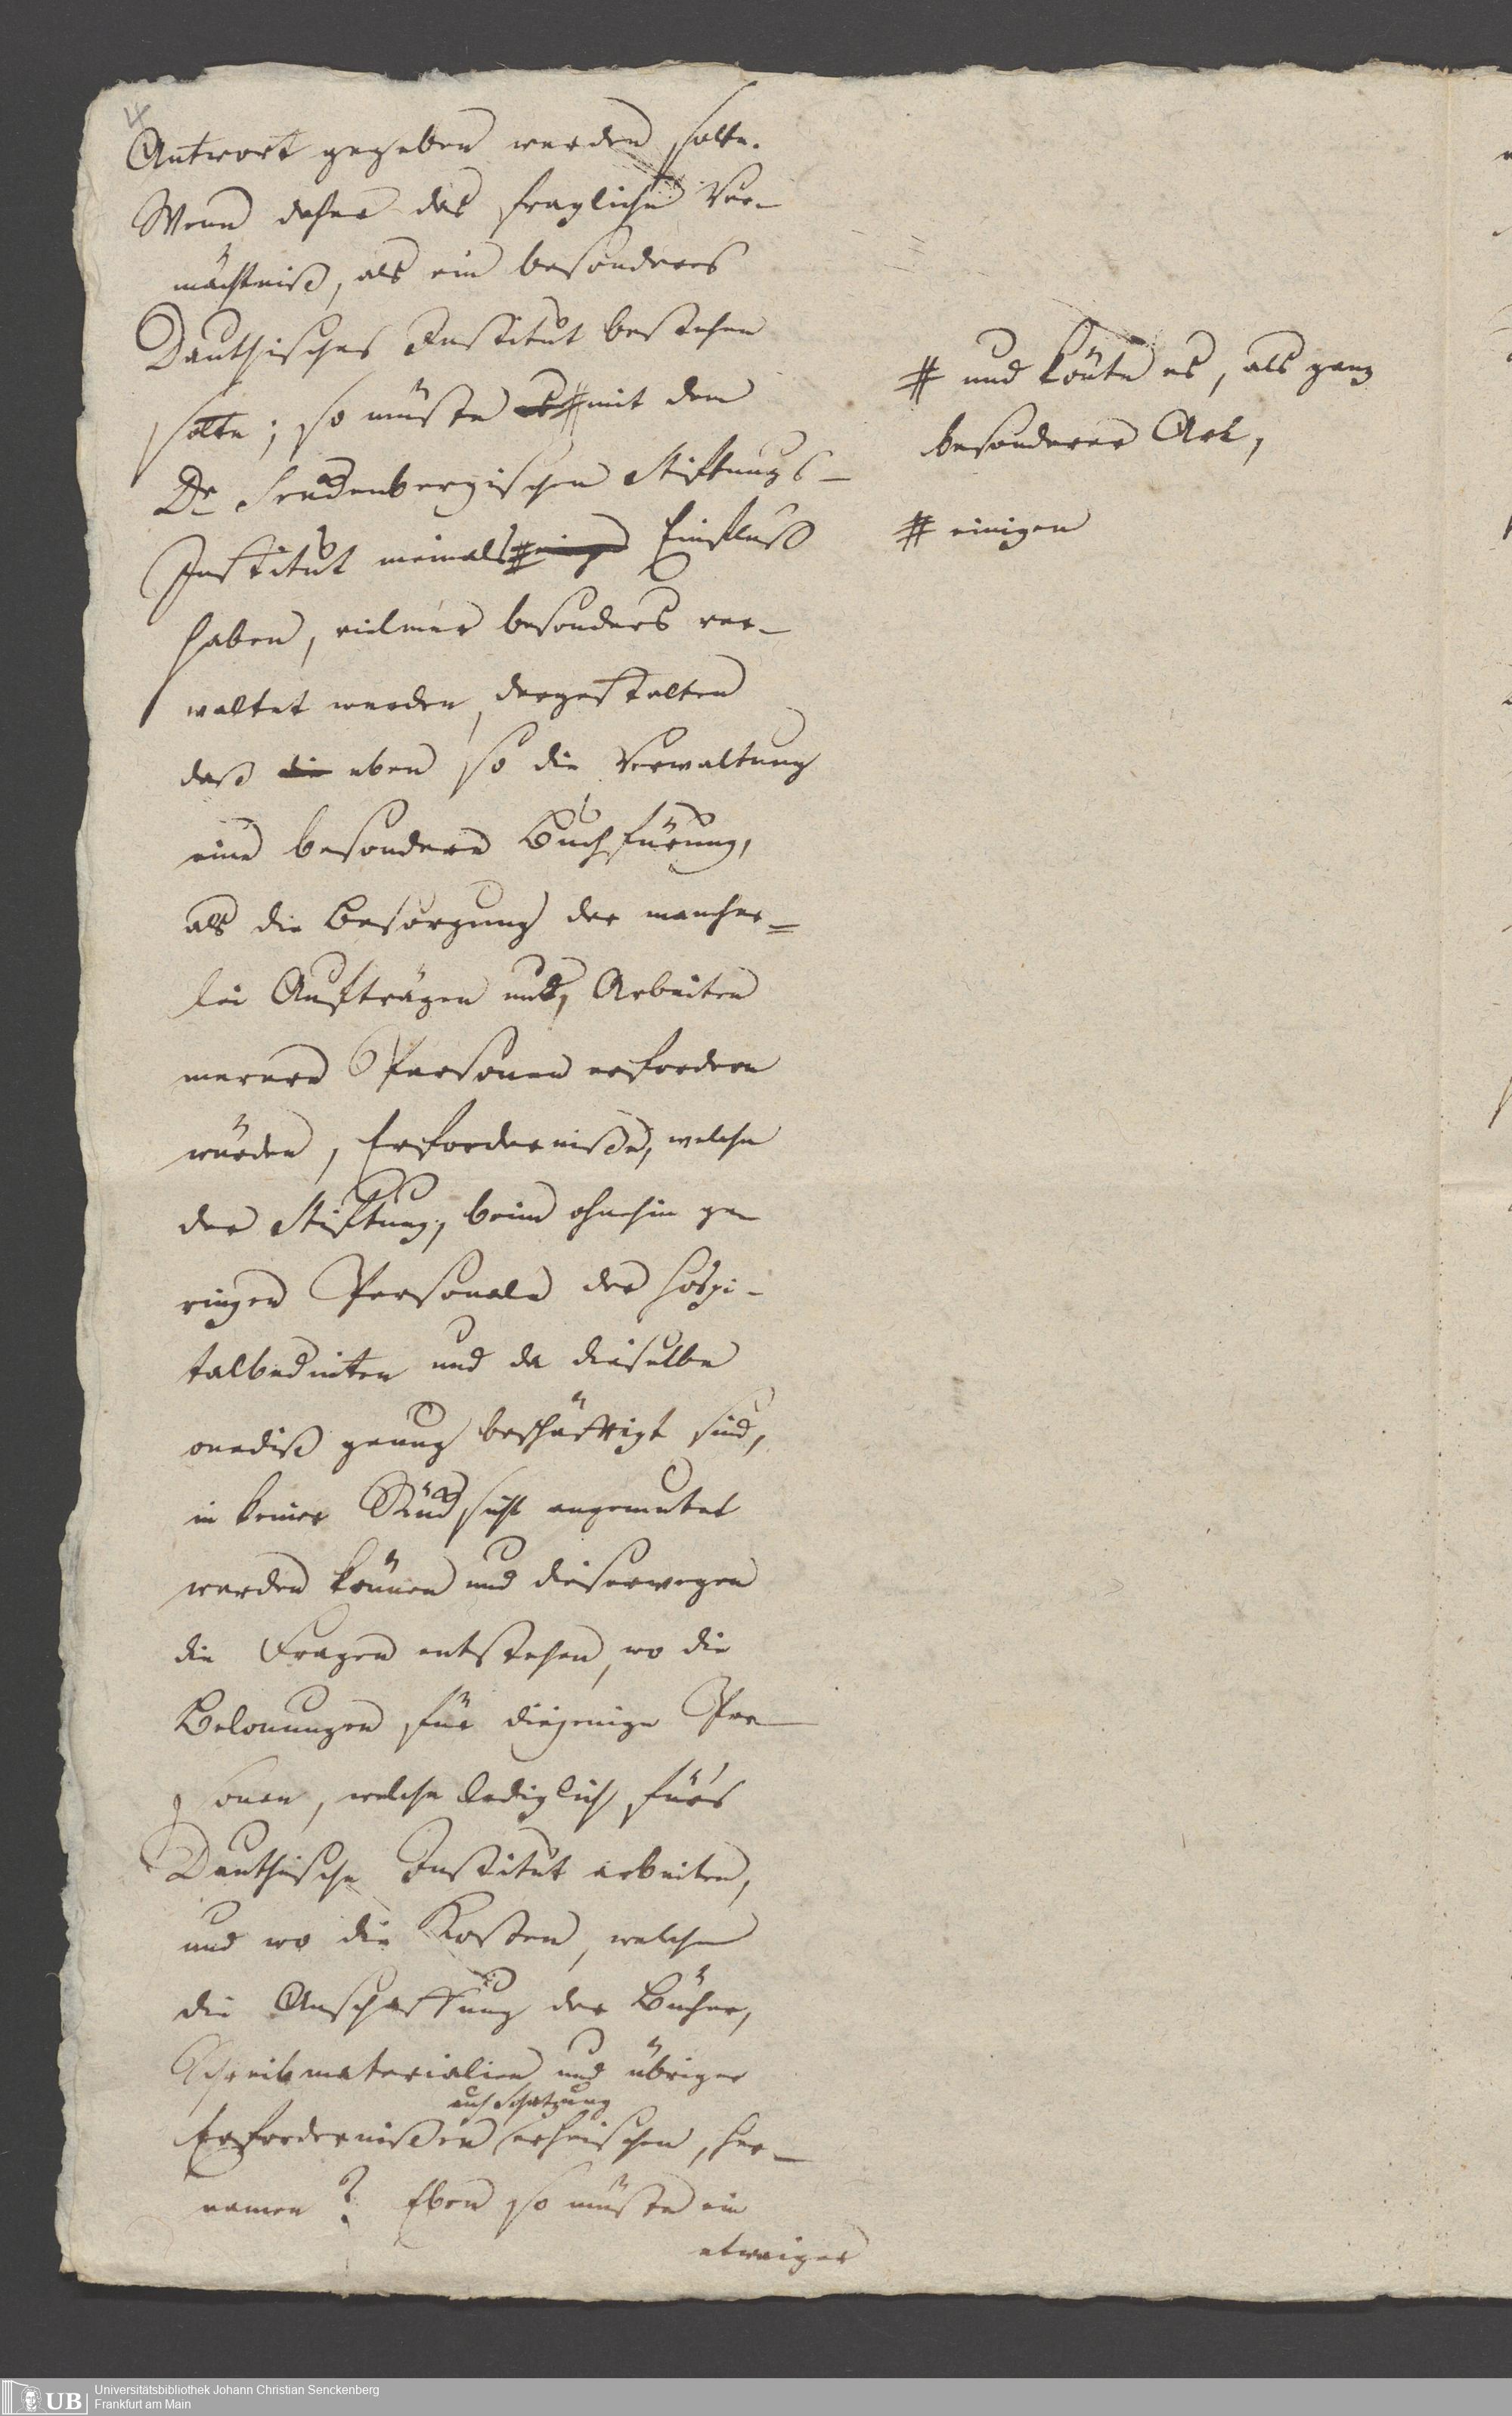 4
Antwort gegeben werden solte.
Wenn daher das fragliche Ver-
mächtniß, als ein besonders
Dauthisches Institut bestehen
solte; so müste es # mit dem
Dr Senckenbergischen Stiftungs-
Institut niemals # einige Einfluß
haben, vielmer besonders ver-
waltet werden, dergestalten
daß die eben so die Verwaltung
eine besondere Buchfürung,
als die Besorgung der mancher-
lei Aufträgen und, Arbeiten
merere Personen erfordern
würden, Erforderniße, welche
der Stiftung, beim ohnehin ge
ringen Personale der Hospi-
talbedinten und da dieselbe
onediß genug beschäftigt sind,
in keiner Rücksicht angemutet
werden können und dieserwegen
die Fragen entstehen, wo die
Belonungen für diejenige Per-
sonen, welche lediglich fürs
Dauthische Institut arbeiten,
und wo die Kosten, welche
die Anschaffung der Bücher,
Schreibmaterialien und übriger
auch Schatzung
Erfordernißen erheischen, her-
namen? Eben so müste ein
etwaiger
# und könte es, als ganz
besonderer Art,
# einigen
UB
Universitätsbibliothek Johann Christian Senckenberg
Frankfurt am Main